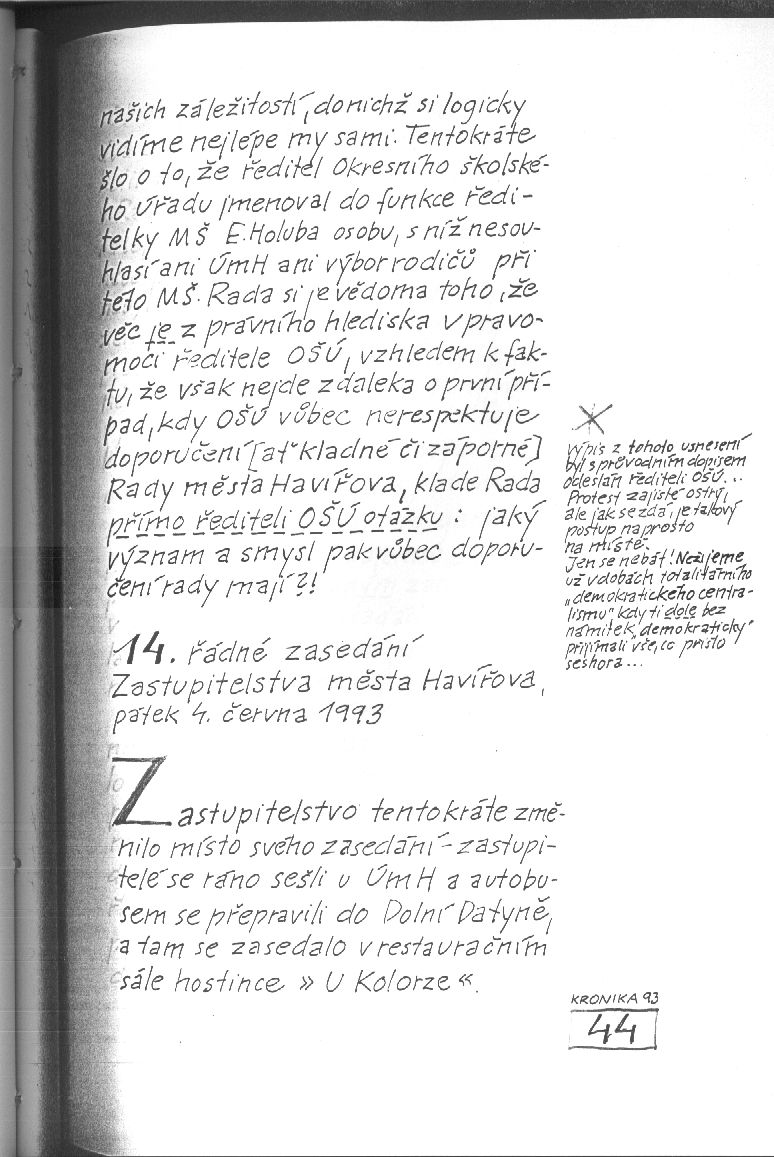 našich záležitostí, do nichž si logicky
vidíme nejlépe my sami. Tentokráte
šlo o to, že ředitel Okresního školské-
ho úřadu jmenoval do funkce ředi-
telky MŠ E. Holuba osobu, s níž nesou-
hlasí ani ÚmH ani výbor rodičů při
této MŠ. Rada si je vědoma toho, že
věc je z právního hlediska v pravo-
moci ředitele OŠÚ, vzhledem k fak-
tu, že však nejde zdaleka o první pří-
pad, kdy OŠÚ vůbec nerespektuje
doporučení [ať kladné či záporné]
Rady města Havířova, klade Rada
přímo řediteli OŠÚ otázku : jaký
význam a smysl pak vůbec doporu-
čení rady mají?!
14. řádné zasedání
Zastupitelstva města Havířova,
pátek 4. června 1993
Zastupitelstvo tentokráte změ-
nilo místo svého zasedání - zastupi-
telé se ráno sešli u ÚmH a autobu-
sem se přepravili do Dolní Datyně,
a tam se zasedalo v restauračním
sále hostince » U Kolorze «.
výpis z tohoto usnesení
byl s průvodním dopisem
odeslán řediteli OŠÚ...
Protest zajisté ostrý,
ale jak se zdá, je takový
postup naprosto
na místě.
Jen se nebát! Nežijeme
už v dobách totalitárního
„demokratického centra-
lismu" kdy ti dole bez
námitek „demokraticky"
přijímali vše, co přišlo
seshora...
KRONIKA 93
44